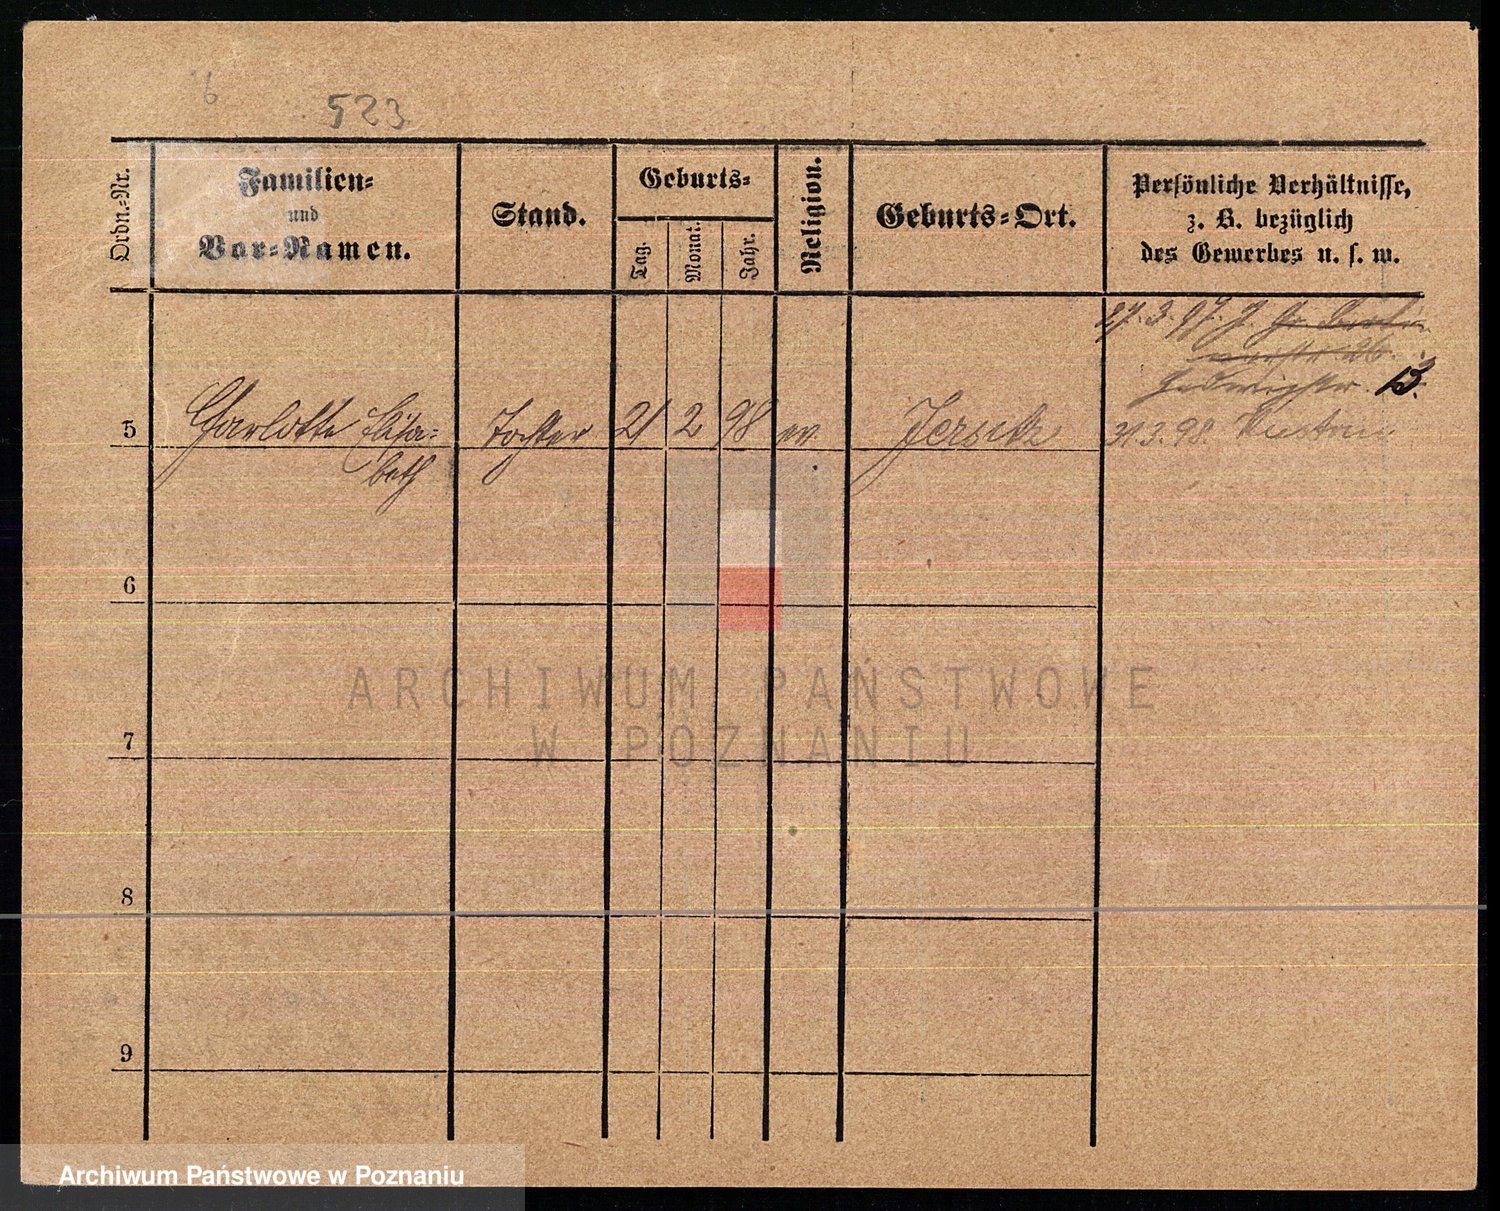 6
523
Ordn.-Nr.
Familien-
und
Vor-Namen.
Stand.
Geburts-
Tag.
Monat.
Jahr.
Religion.
Geburts-Ort.
Persönliche Verhältnisse,
z. B. bezüglich
des Gewerbes u. s. w.
27. 3. 97. J.
26.
Hedwigstr. 13.
5 Charlotte Elisa- Tochter 21 2 98 ev. Jersitz 31.3.98 Custrin
beth
6
7
8
9
ARCHIWUM PAŃSTWOWE
W POZNANIU
Archiwum Państwowe w Poznaniu